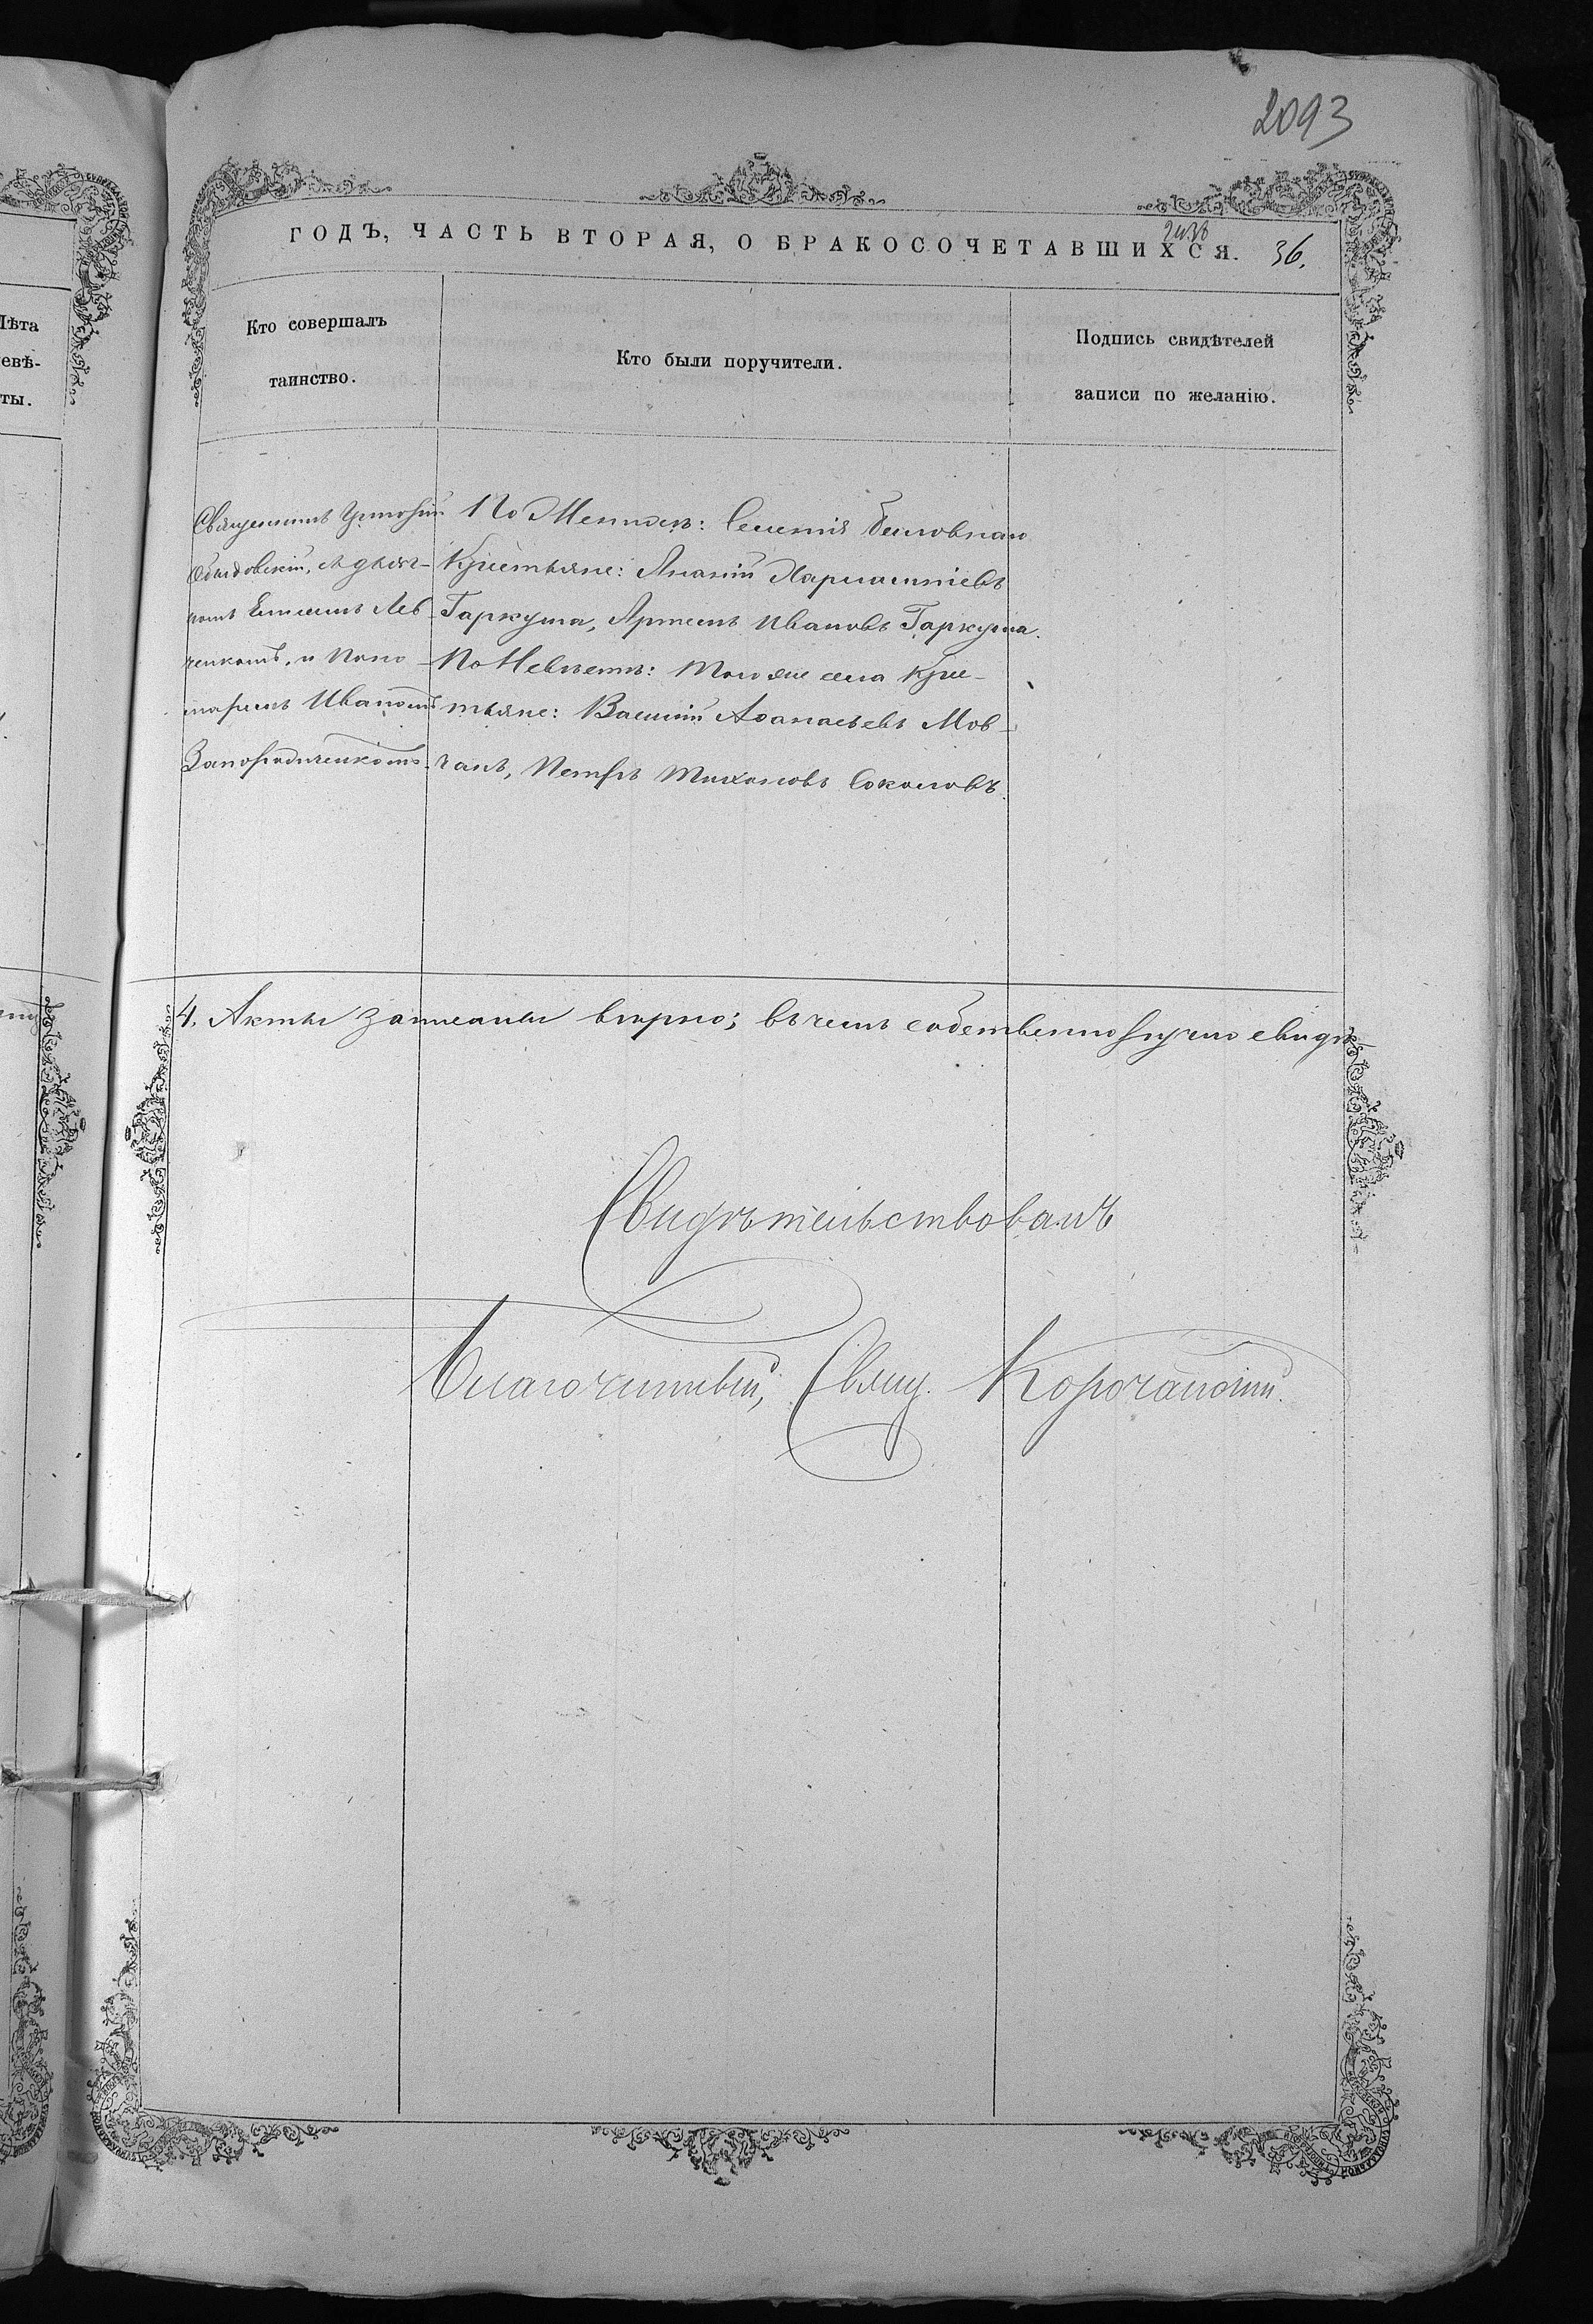 2093
ГОДЪ, ЧАСТЬ ВТОРАЯ, О БРАКОСОЧЕТАВШИХСЯ. 36.
Лѣта
невѣ-
ты.
Кто совершалъ
таинство.
Кто были поручители.
Подпись свидѣтелей
записи по желанію.
Священникъ
съ дьяч-
комъ Лев-
ченкомъ, и Поно-
маремъ Иваномъ
Запорожченкомъ.
По Женихѣ: Селенія
Крестьяне: Ананій Харлампіевъ
Гаркуша, Артемъ Ивановъ Гаркуша.
По Невѣстѣ: Того же села Крес-
тьяне: Василій Аѳанасьевъ Мов-
чанъ, Петръ Тихоновъ Соколовъ.
4. Акты записаны вѣрно; въ чемъ собственноручно свидѣ-
Свидѣтельствовалъ
Благочинный, Свящ.